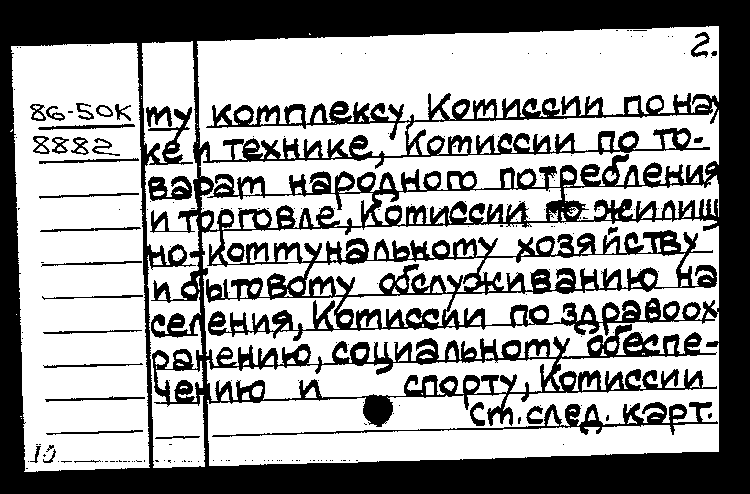 2.
86-50К му комплексу, Комиссии по нау
8882 ке и технике, Комиссии по то-
варам народного потребления
и торговле, Комиссии по жилищ
но-коммунальному хозяйству
и бытовому обслуживанию на
селения, Комиссии по здравоох
ранению, социальному обеспе-
чению и спорту, Комиссии
См. след. карт.
10